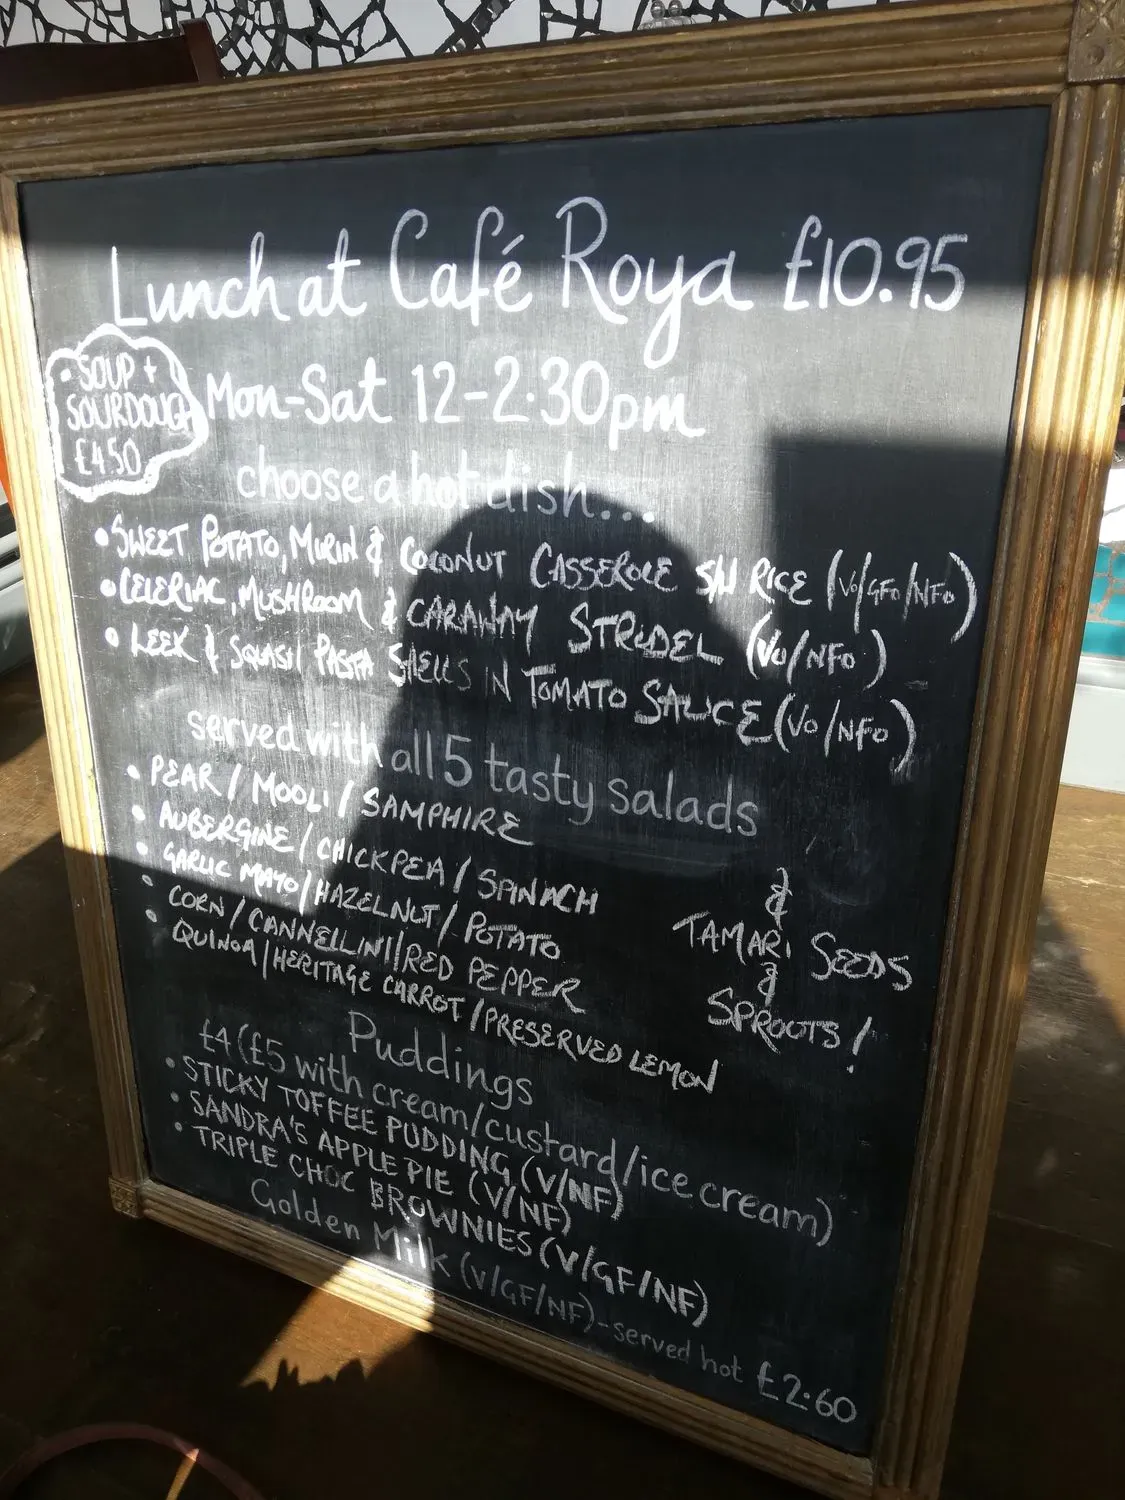 Lunch at Café Roya £10.95
• SOUP +
SOURDOUGH
£4.50
Mon-Sat 12-2.30pm
choose a hot dish...
• SWEET POTATO, MIRIN & COCONUT CASSEROLE S/W RICE (VO/GFO/NFO)
• CELERIAC, MUSHROOM & CARAWAY STRUDEL (VO/NFO)
• LEEK & SQUASH PASTA SHELLS IN TOMATO SAUCE (VO/NFO)
served with all 5 tasty salads
• PEAR / MOOLI / SAMPHIRE
• AUBERGINE / CHICKPEA / SPINACH
• GARLIC MAYO / HAZELNUT / POTATO
• CORN / CANNELLINI / RED PEPPER
• QUINOA / HERITAGE CARROT / PRESERVED LEMON
&
TAMARI SEEDS
&
SPROUTS!
Puddings
£4 (£5 with cream/custard/ice cream)
• STICKY TOFFEE PUDDING (V/NF)
• SANDRA'S APPLE PIE (V/NF)
• TRIPLE CHOC BROWNIES (V/GF/NF)
Golden Milk (V/GF/NF) - served hot £2.60